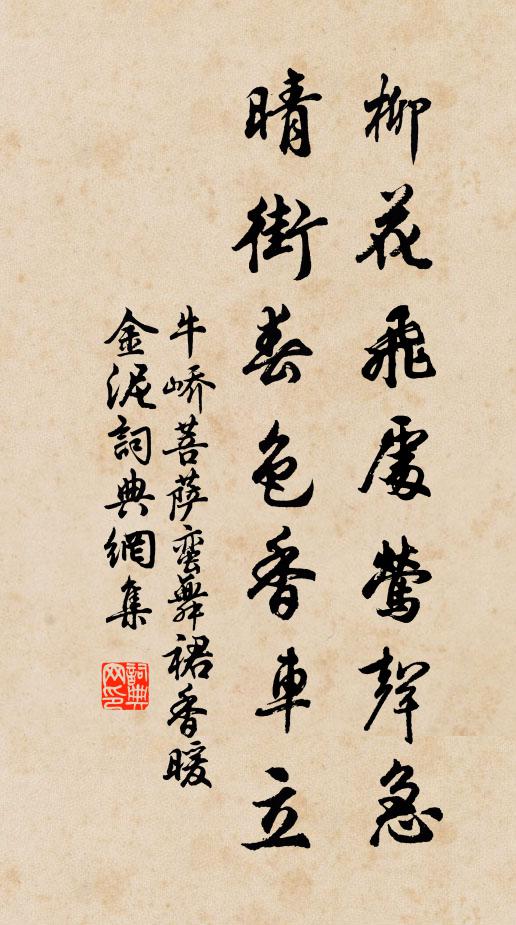 柳花飛處鶯聲急
晴街春色香車立
牛嶠菩薩蠻舞裙香暖
金泥詞典網集
詞典
网印